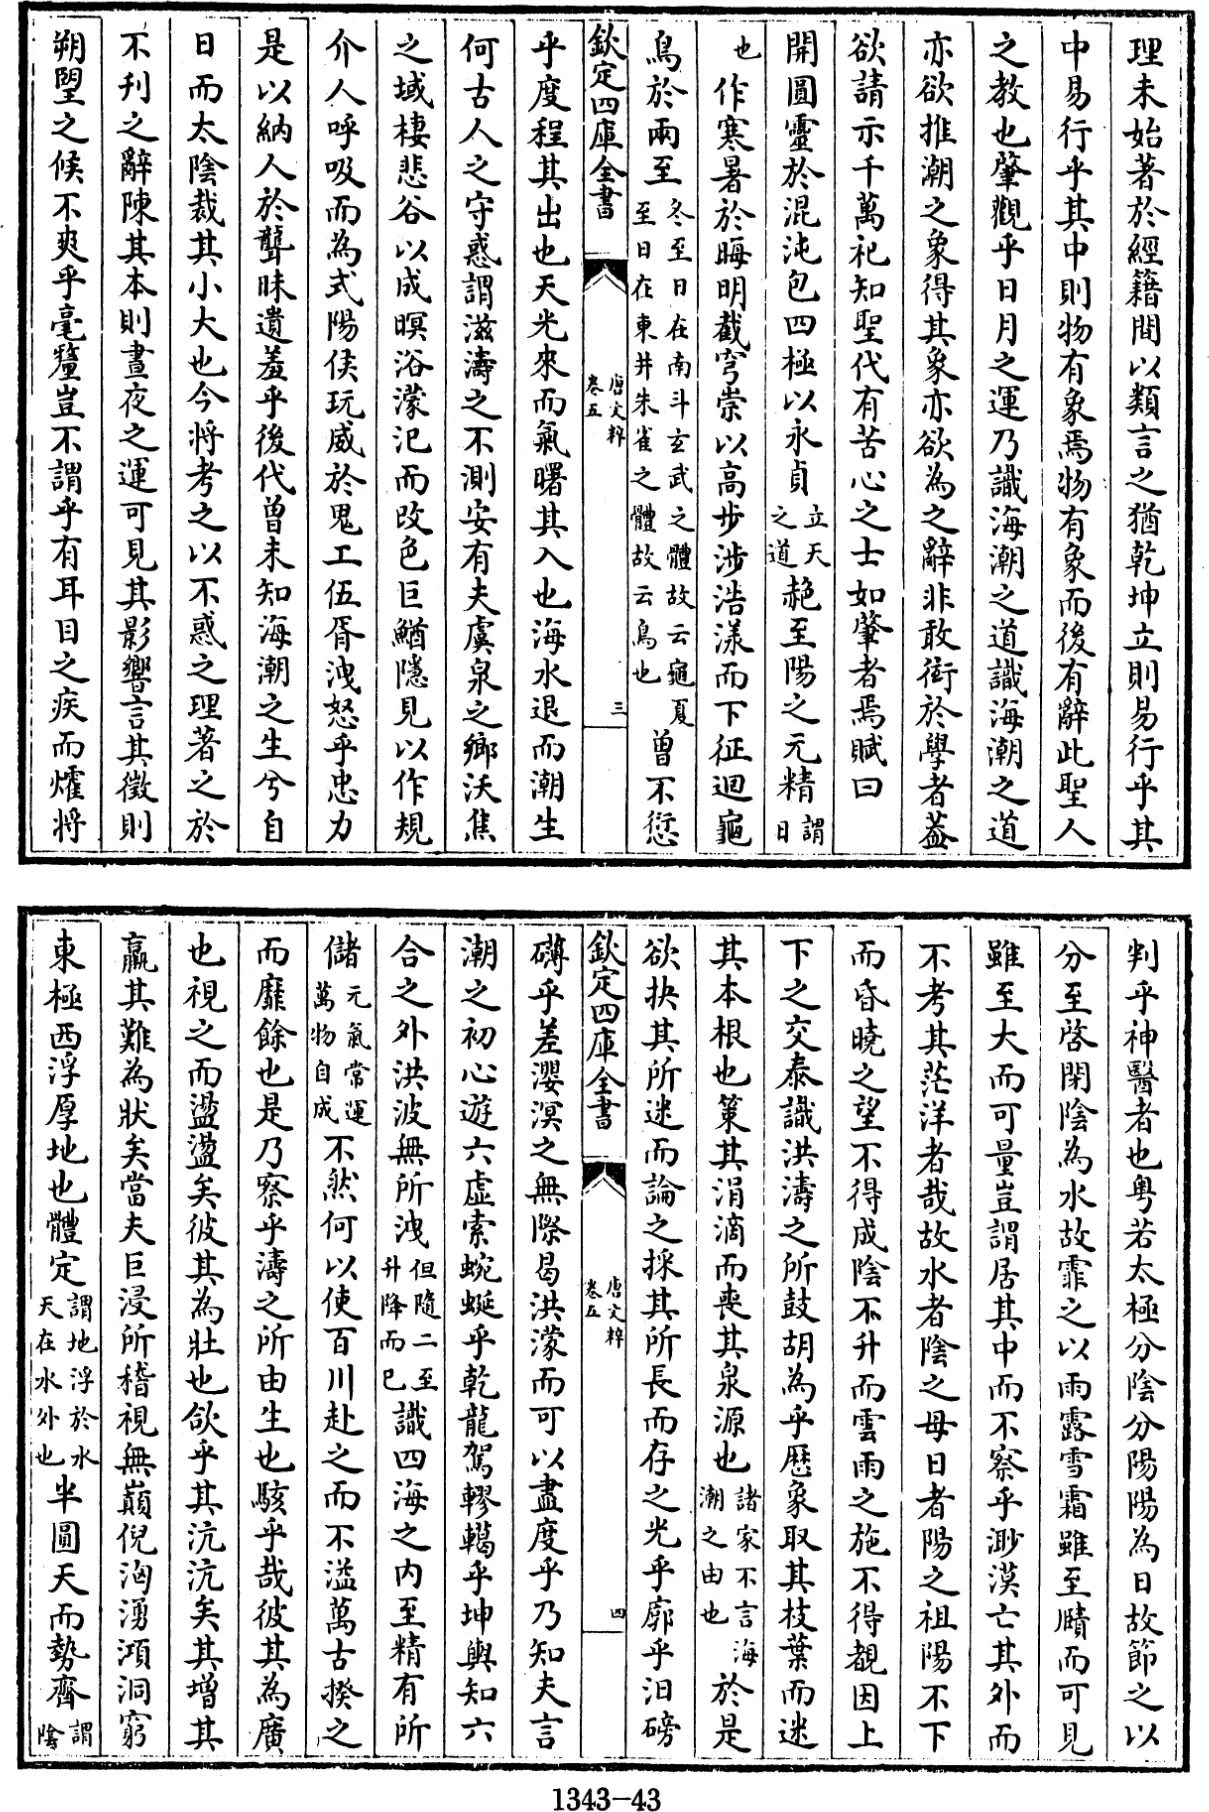 理未始著於經籍間以類言之猶乾坤立則易行乎其
中易行乎其中則物有象焉物有象而後有辭此聖人
之教也肇觀乎日月之運乃識海潮之道識海潮之道
亦欲推潮之象得其象亦欲為之辭非敢衒於學者蓋
欲請示千萬祀知聖代有苦心之士如肇者焉賦曰
開圓靈於混沌包四極以永貞立天之道赩至陽之元精謂日
也作寒暑於晦明截穹崇以高步涉浩漾而下征迴龜
鳥於兩至冬至日在南斗玄武之體故云龜夏至日在東井朱雀之體故云鳥也曾不愆
欽定四庫全書 唐文粹 卷五 三
乎度程其出也天光來而氣曙其入也海水退而潮生
何古人之守惑謂滋濤之不測安有夫虞泉之鄉沃焦
之域棲悲谷以成暝浴濛汜而改色巨鰌隱見以作規
介人呼吸而為式陽侯玩威於鬼工伍胥洩怒乎忠力
是以納人於聾昧遺羞乎後代曾未知海潮之生兮自
日而太陰裁其小大也今將考之以不惑之理著之於
不刊之辭陳其本則晝夜之運可見其影響言其徵則
朔朢之候不爽乎毫釐豈不謂乎有耳目之疾而燿將
判乎神醫者也粤若太極分陰分陽陽為日故節之以
分至啓閉陰為水故霏之以雨露雪霜雖至賾而可見
雖至大而可量豈謂居其中而不察乎渺漠亡其外而
不考其茫洋者哉故水者陰之母日者陽之祖陽不下
而昏曉之望不得成陰不升而雲雨之施不得覩因上
下之交泰識洪濤之所鼓胡為乎歷象取其枝葉而迷
其本根也策其涓滴而喪其泉源也諸家不言海潮之由也於是
欲抉其所迷而論之採其所長而存之光乎廓乎汨磅
欽定四庫全書 唐文粹 卷五 四
礴乎差瀴溟之無際曷洪濛而可以盡度乎乃知夫言
潮之初心遊六虛索蜿蜒乎乾龍駕轇轕乎坤輿知六
合之外洪波無所洩但隨二至升降而已識四海之内至精有所
儲元氣常運萬物自成不然何以使百川赴之而不溢萬古揆之
而靡餘也是乃察乎濤之所由生也駭乎哉彼其為廣
也視之而盪盪矣彼其為壯也欲乎其沆沆矣其增其
羸其難為狀矣當夫巨浸所稽視無巔倪汹湧澒洞窮
東極西浮厚地也體定謂地浮於水天在水外也半圓天而勢齊謂陰
1343-43